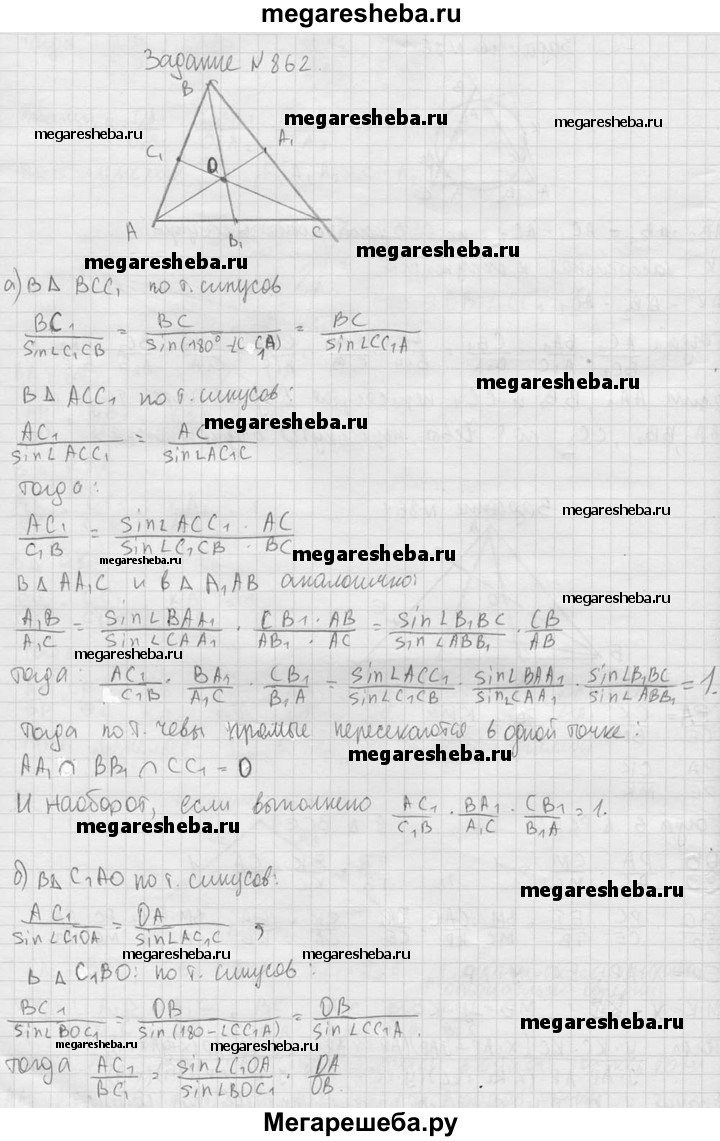 megaresheba.ru
Задание №862.
B
megaresheba.ru
megaresheba.ru megaresheba.ru
C₁ A₁
O
A B₁ C
megaresheba.ru
megaresheba.ru
а) В Δ BCC₁ по т. синусов
BC₁/sin∠C₁CB = BC/sin(180°-∠C C₁A) = BC/sin∠CC₁A
megaresheba.ru
В Δ ACC₁ по т. синусов:
megaresheba.ru
AC₁/sin∠ACC₁ = AC/sin∠AC₁C
тогда:
megaresheba.ru
AC₁/C₁B = sin∠ACC₁ · AC/sin∠C₁CB · BC
megaresheba.ru
megaresheba.ru
В Δ AA₁C и в Δ A₁AB аналогично:
megaresheba.ru
A₁B/A₁C = sin∠BAA₁/sin∠CAA₁ · CB₁ · AB/AB₁ · AC = sin∠B₁BC/sin∠ABB₁ · CB/AB
тогда: AC₁/C₁B · BA₁/A₁C · CB₁/B₁A = sin∠ACC₁/sin∠C₁CB · sin∠BAA₁/sin∠CAA₁ · sin∠B₁BC/sin∠ABB₁ = 1.
тогда по т. Чевы прямые пересекаются в одной точке:
megaresheba.ru
AA₁ ∩ BB₁ ∩ CC₁ = O
И наоборот, если выполнено AC₁/C₁B · BA₁/A₁C · CB₁/B₁A = 1.
megaresheba.ru
б) В Δ C₁AO по т. синусов:
megaresheba.ru
AC₁/sin∠C₁OA = OA/sin∠AC₁C ,
megaresheba.ru
megaresheba.ru
В Δ C₁BO: по т. синусов:
BC₁/sin∠BOC₁ = OB/sin(180-∠CC₁A) = OB/sin∠CC₁A.
megaresheba.ru
megaresheba.ru
megaresheba.ru
Тогда AC₁/BC₁ = sin∠C₁OA/sin∠BOC₁ · OA/OB.
Мегарешеба.ру